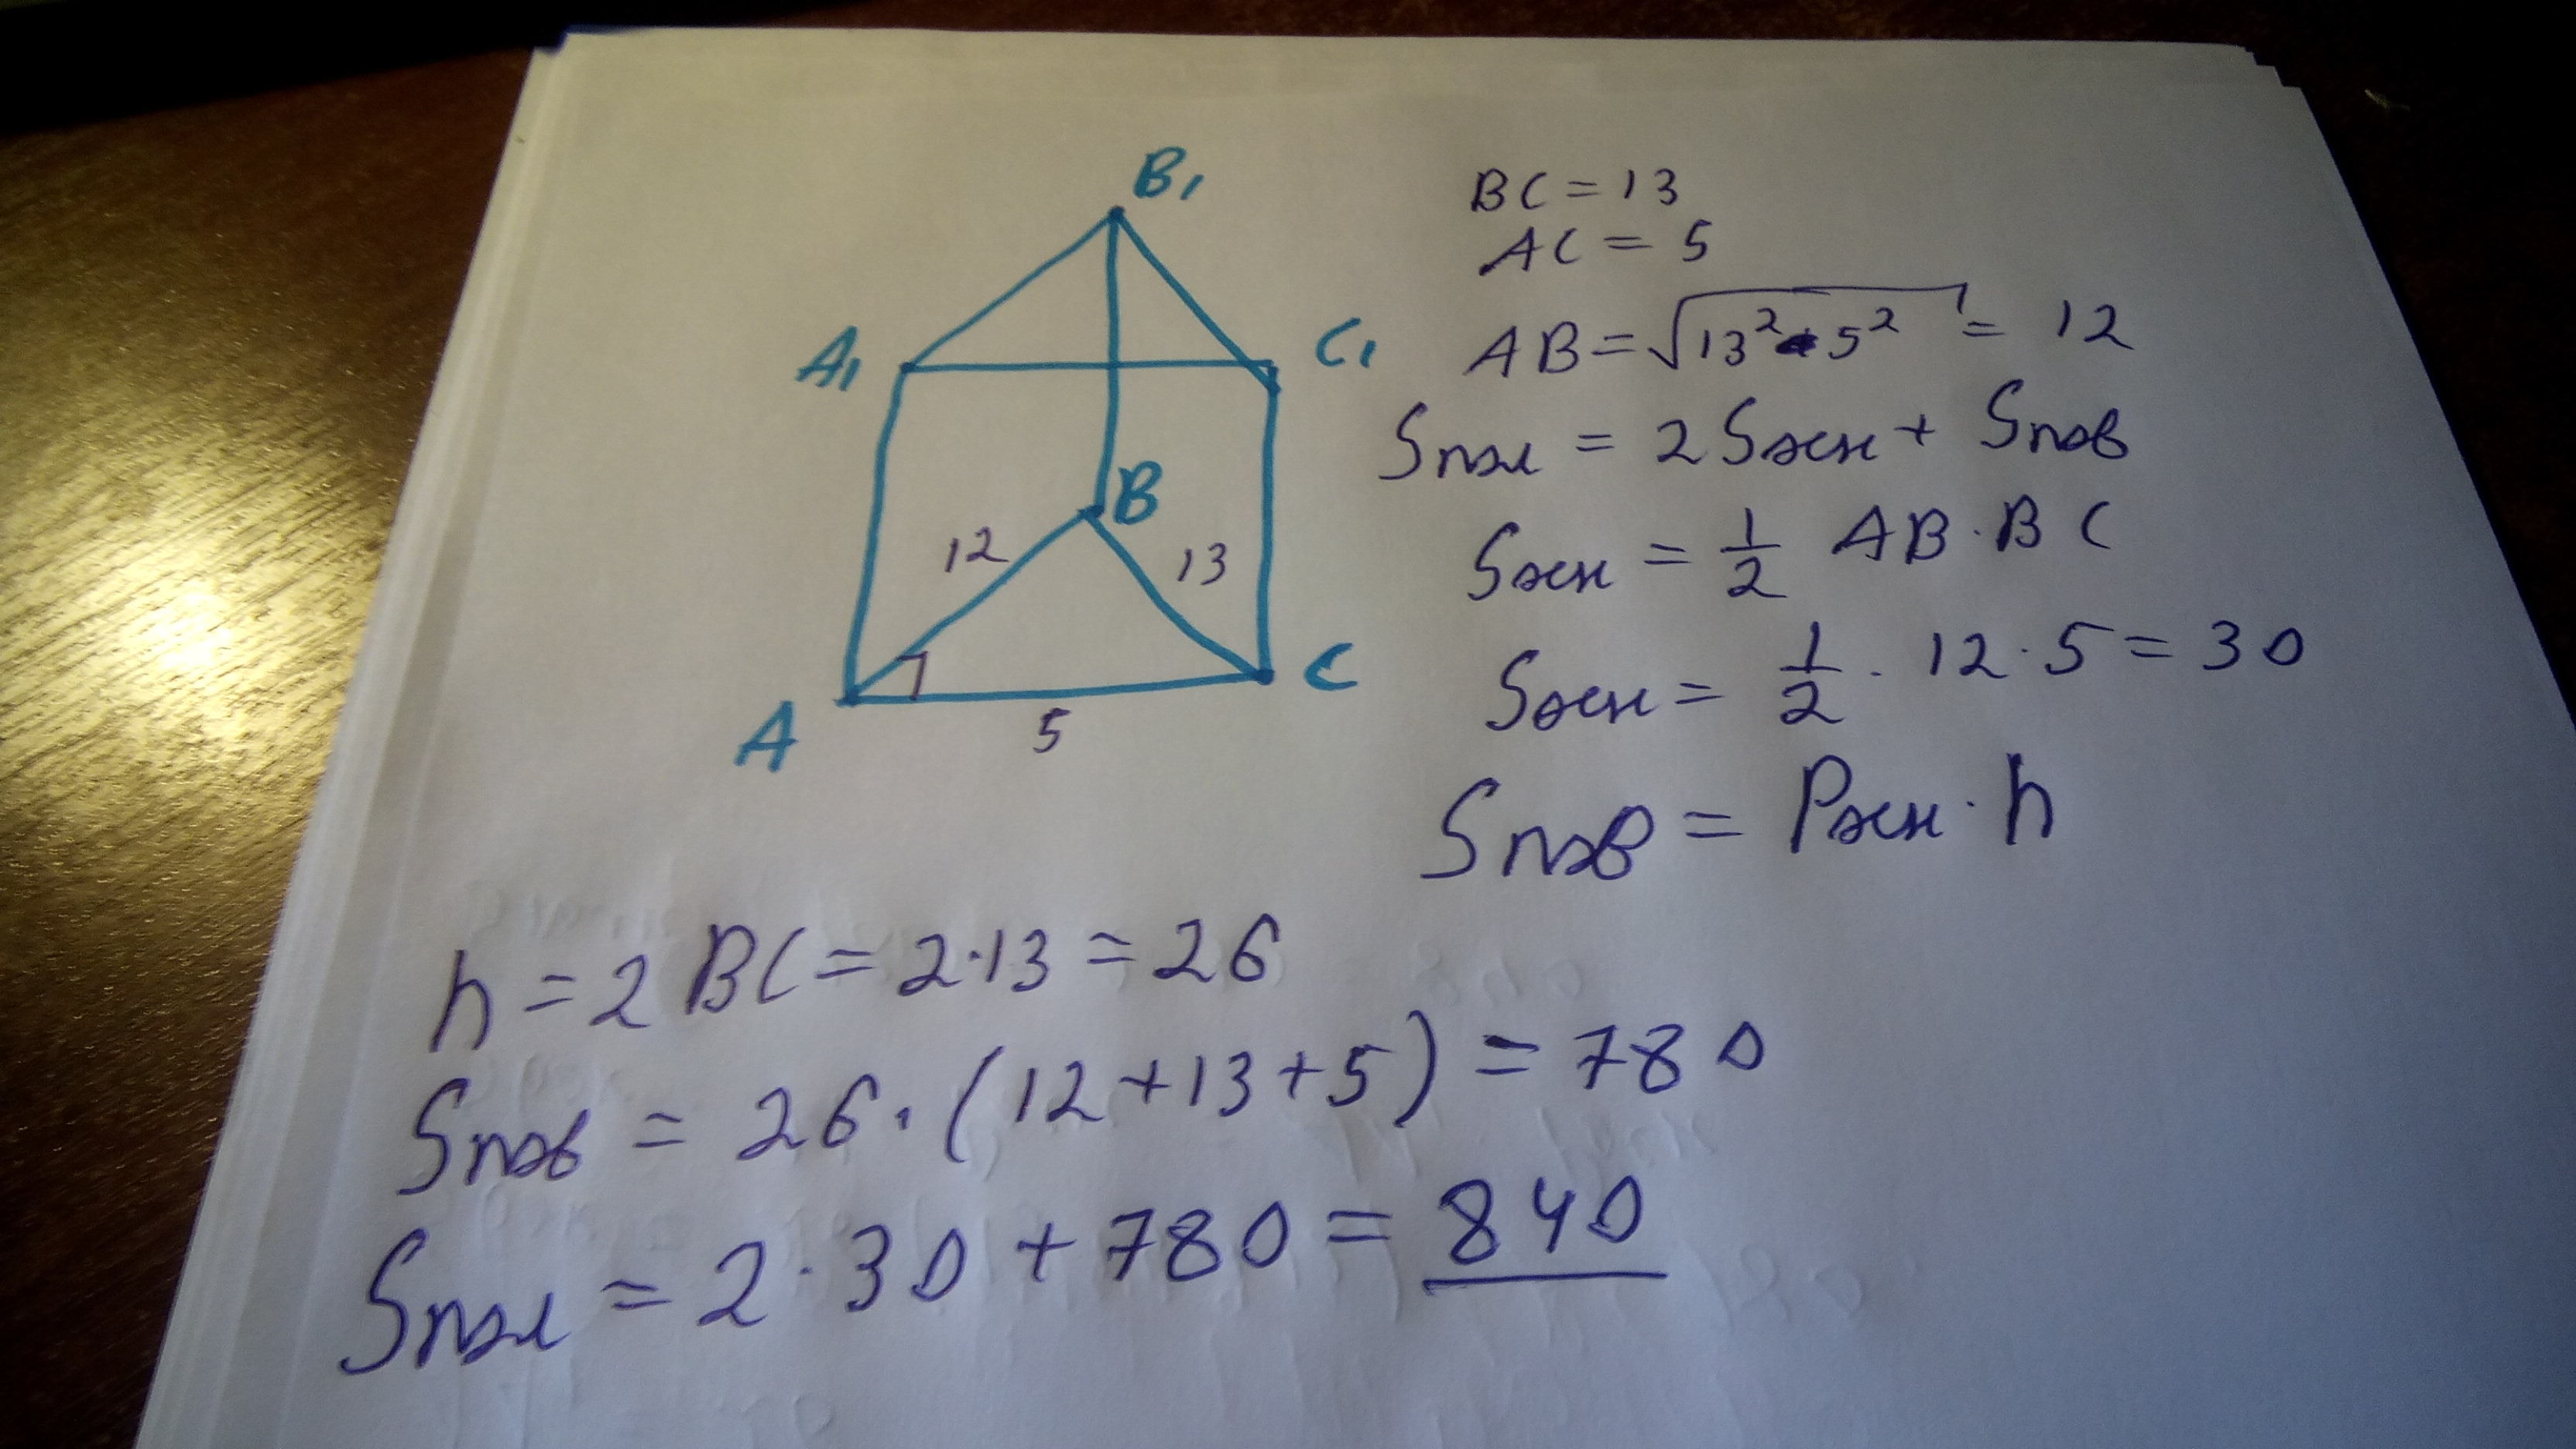 B₁
A₁
C₁
B
12
13
A
C
5
BC = 13
AC = 5
AB = √13² - 5² = 12
Sпол = 2Sосн + Sпов
Sосн = 1/2 AB · BC
Sосн = 1/2 · 12 · 5 = 30
Sпов = Pосн · h
h = 2 BC = 2·13 = 26
Sпов = 26 · (12 + 13 + 5) = 780
Sпол = 2 · 30 + 780 = 840